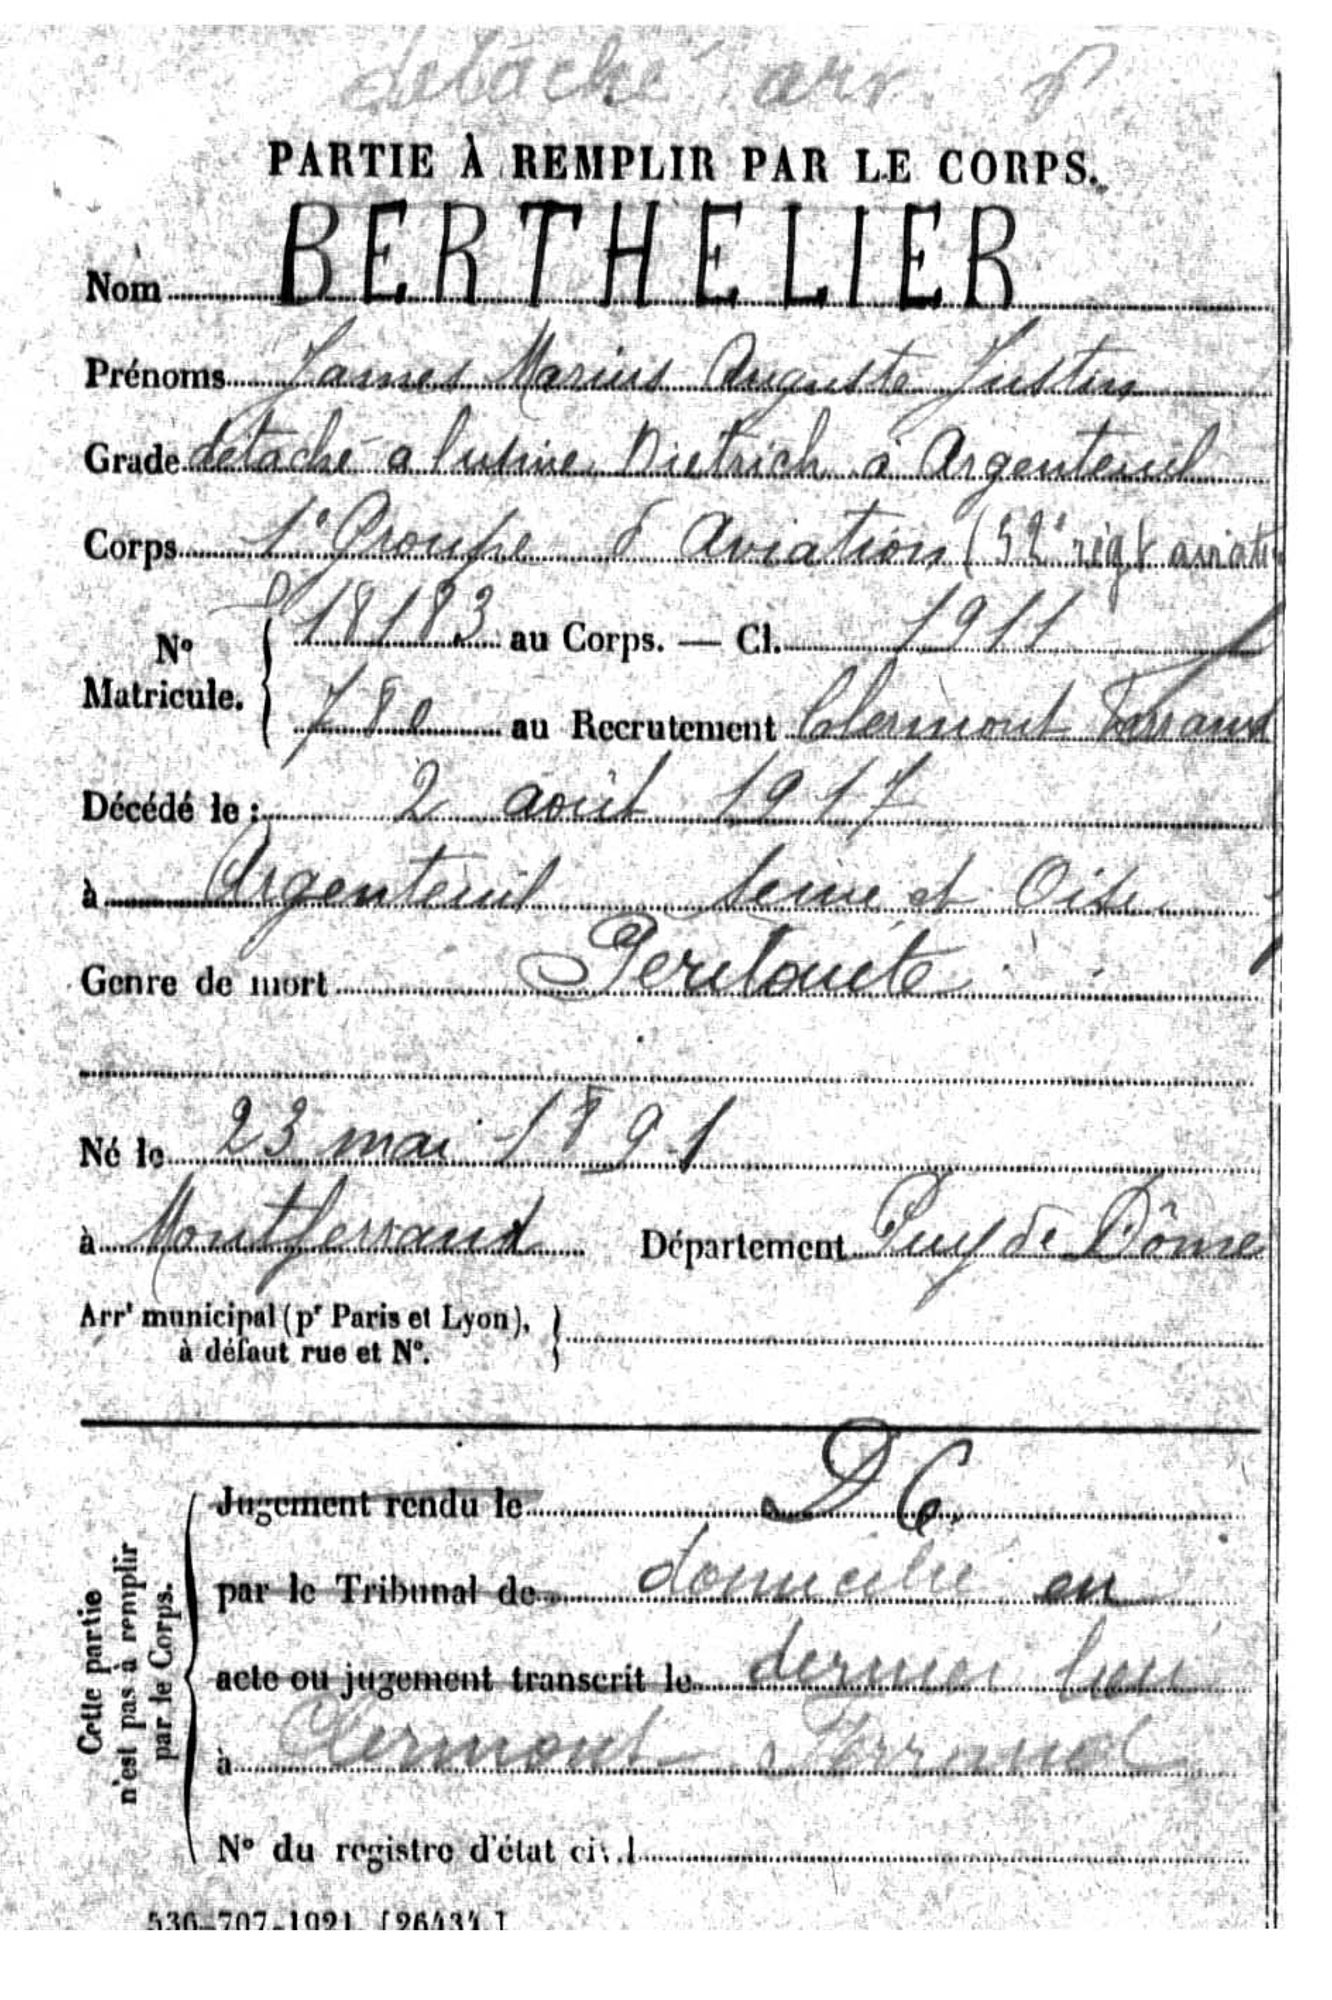 détaché arr.
PARTIE À REMPLIR PAR LE CORPS.
Nom BERTHELIER
Prénoms James Marius Auguste Justin
Grade détaché a l usine Dietrich à Argenteuil
Corps 1e Groupe d Aviation (52e régt aviati
No Matricule. 18183 au Corps. — Cl. 1911
780 au Recrutement Clermont Ferrand
Décédé le : 2 août 1917
à Argenteuil Seine et Oise
Genre de mort Peritonite
Né le 23 mai 1891
à Montferrand Département Puy de Dôme
Arrt municipal (pr Paris et Lyon), à défaut rue et No.
Cette partie n'est pas à remplir par le Corps.
Jugement rendu le D C.
par le Tribunal de domicilié en
acte ou jugement transcrit le dernier lieu
à Clermont Ferrand
No du registre d'état civil
536-707-1921. [26434.]